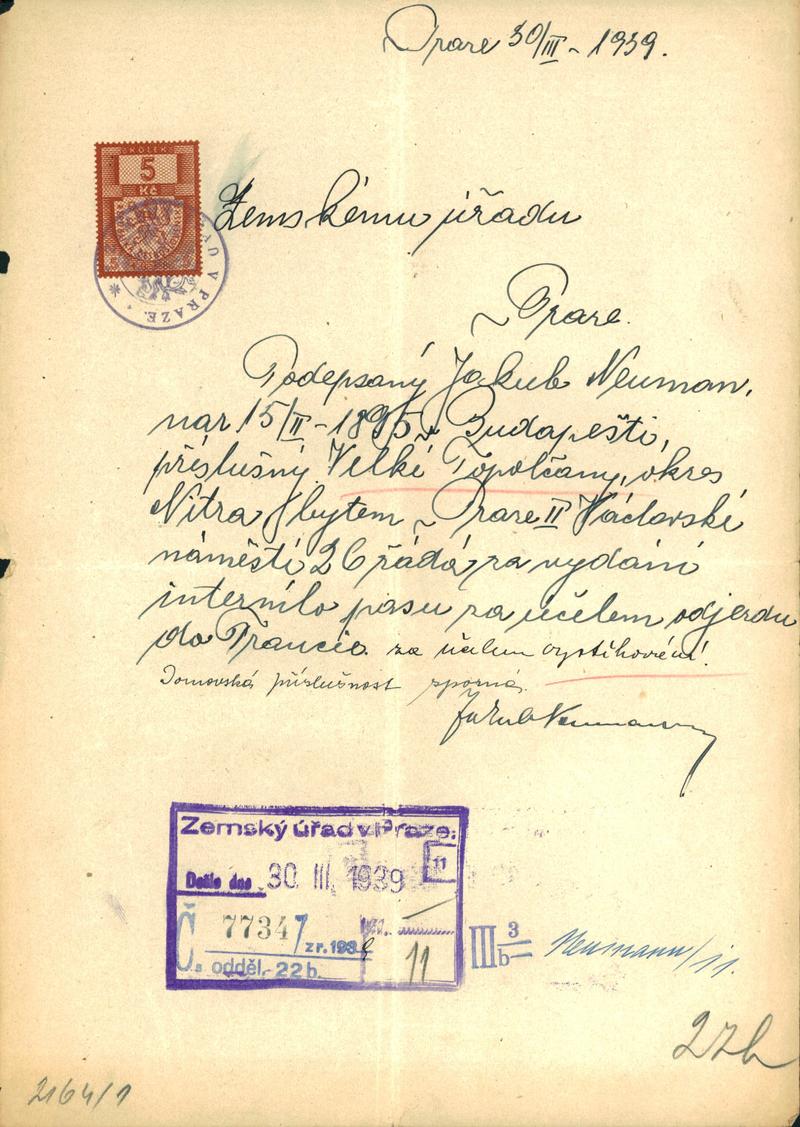 Praze 30/III - 1939.
KOLEK
5
Kč
Zemskému úřadu
V PRAZE
v Praze.
Podepsaný Jakub Neuman,
nar 15/II - 1895 v Budapešti,
příslušný Velké Topolčany, okres
Nitra, bytem v Praze II Václavské
náměstí 26 žádá za vydání
interního pasu za účelem odjezdu
do Francie za účelem vystěhování.
Domovská příslušnost sporná.
Jakub Neumann
Zemský úřad v Praze.
Došlo dne 30 III. 1939 11
Č. 77347 z r. 1939
odděl. 22 b. 11
III 3 b Neumann/11.
22b
2164/1